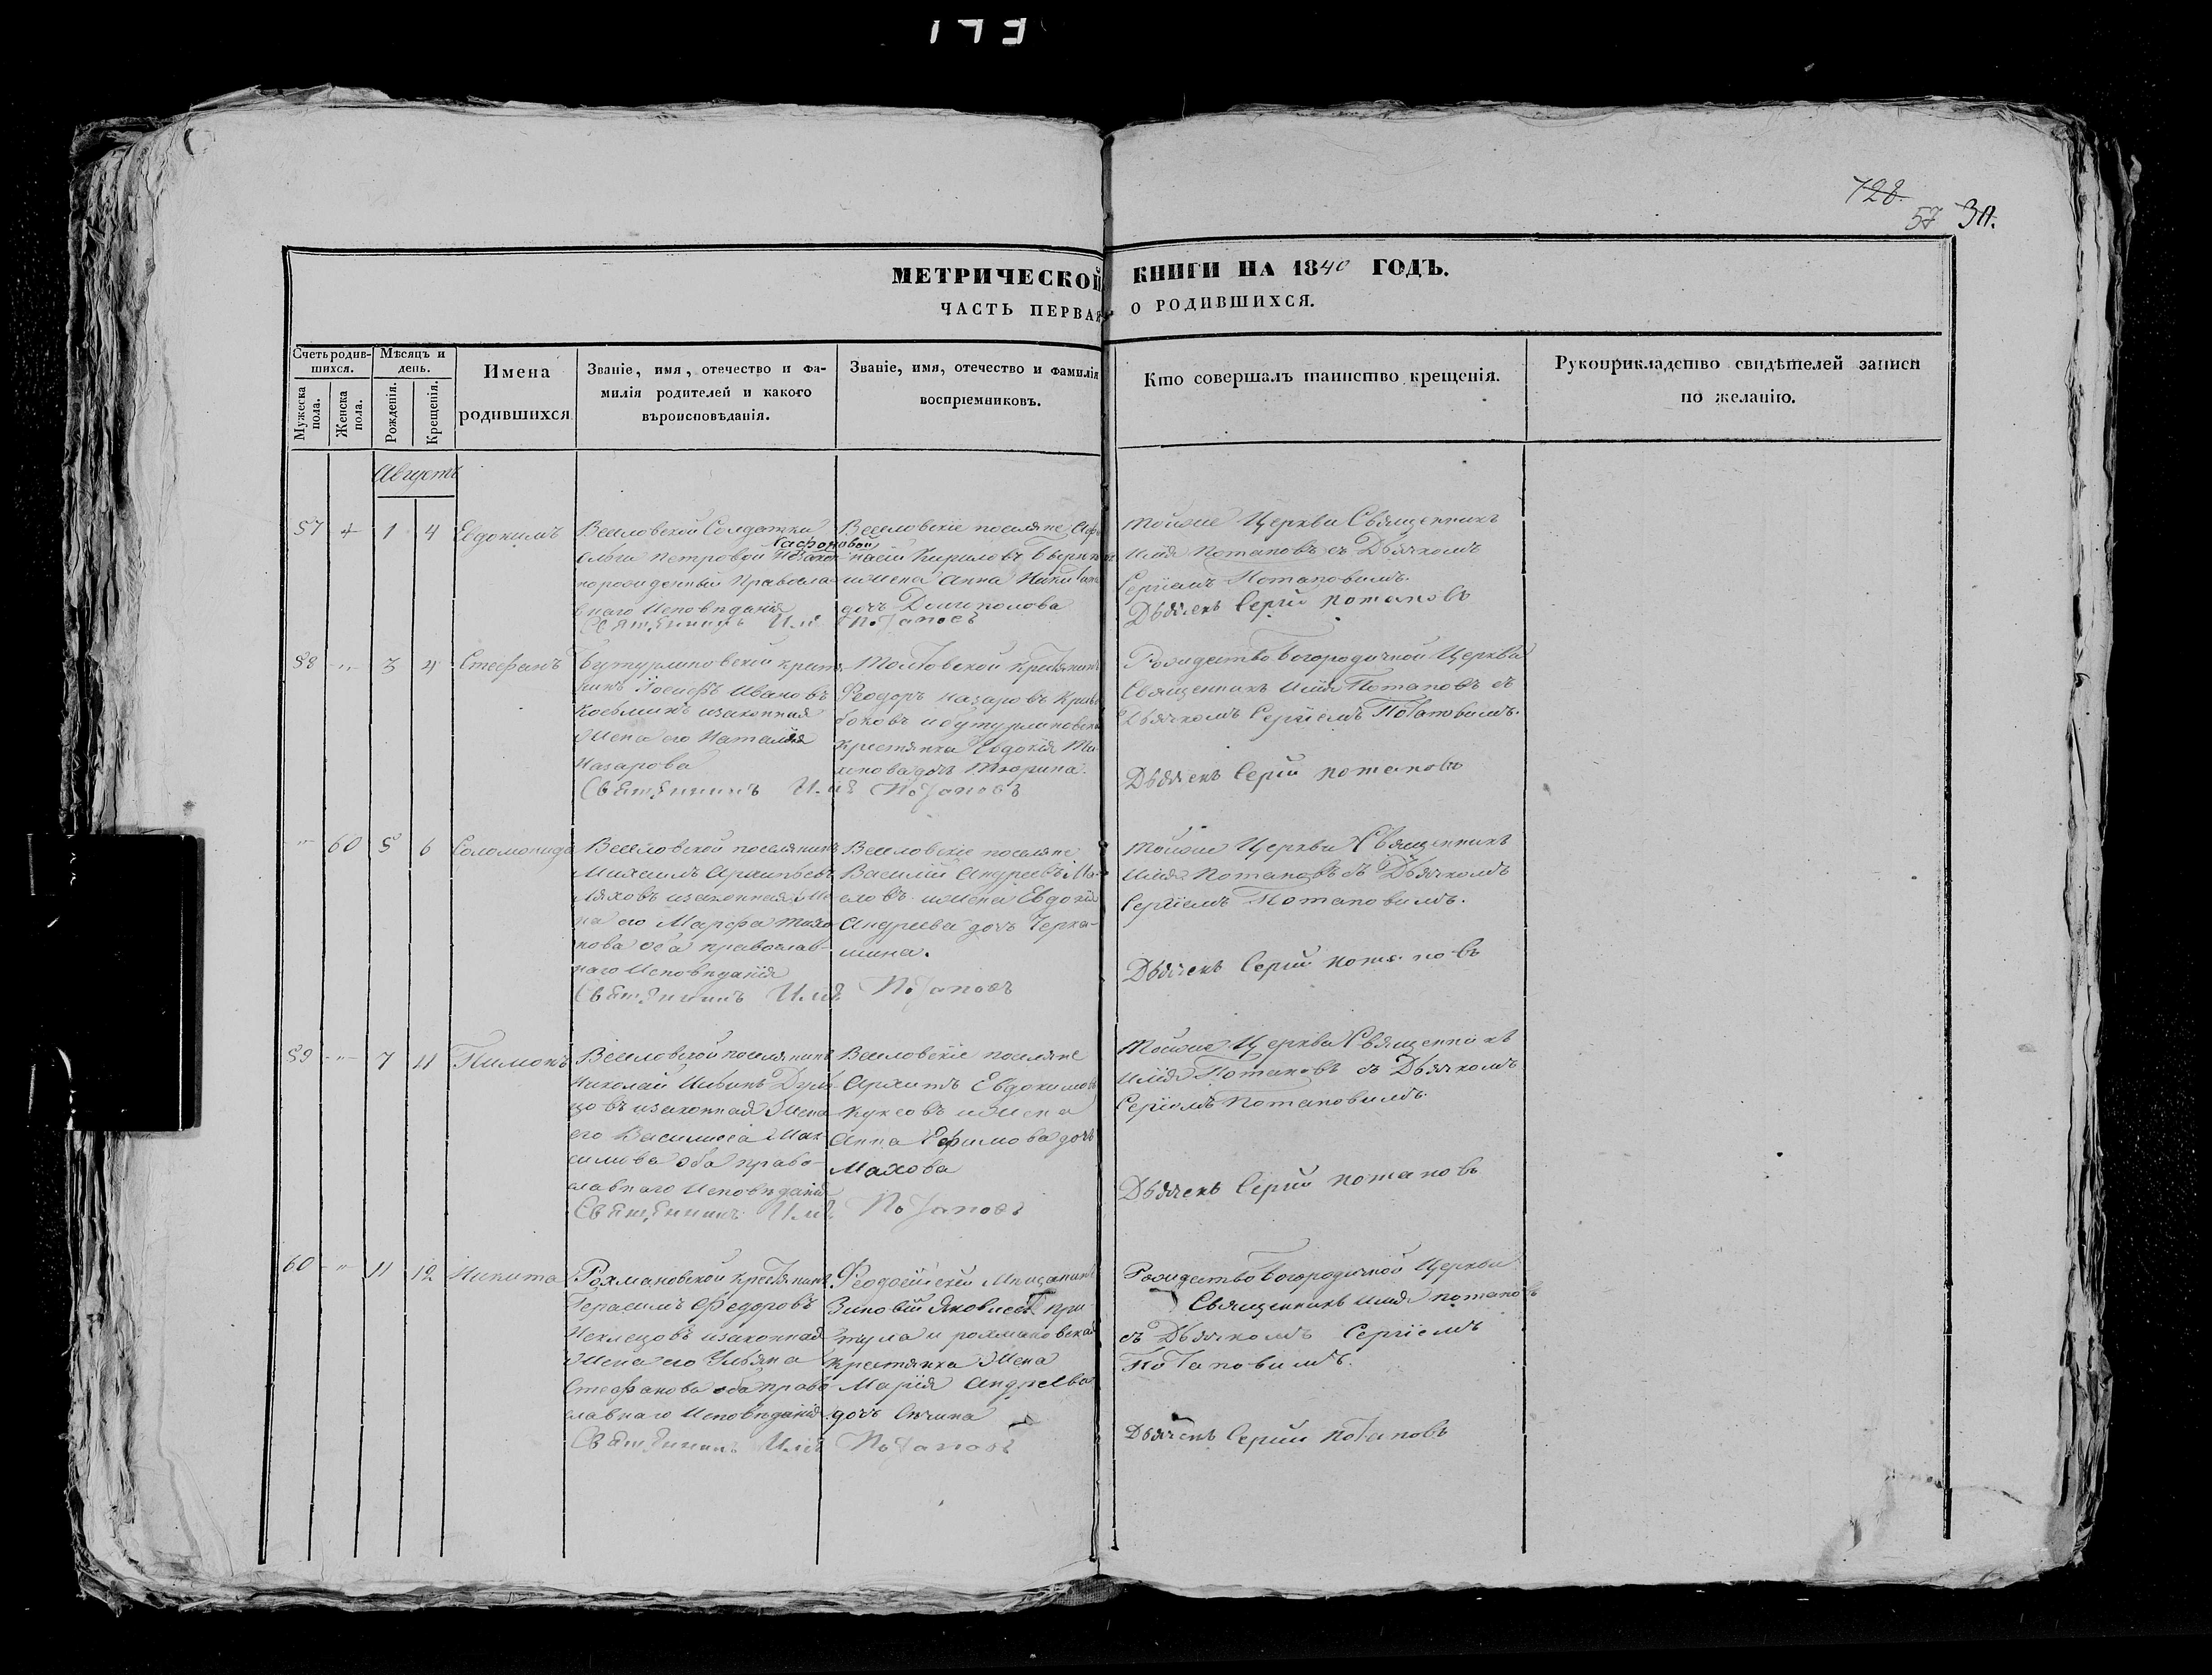 173
728.
57 30.
МЕТРИЧЕСКОЙ КНИГИ НА 1840 ГОДЪ.
ЧАСТЬ ПЕРВАЯ. О РОДИВШИХСЯ.
Счетъ родив-
шихся.
Мужеска
пола.
Женска
пола.
Мѣсяцъ и
день.
Рожденія.
Крещенія.
Имена
родившихся
Званіе, имя, отечество и фа-
милія родителей и какого
вѣроисповѣданія.
Званіе, имя, отечество и фамилія
воспріемниковъ.
Кто совершалъ таинство крещенія.
Рукоприкладство свидѣтелей записи
по желанію.
Августъ
57 1 4 Евдокимъ
Веселовской Солдатки
Сафоновой
Петровой
порожденный Правосла-
внаго Исповѣданія
Священникъ Илія Потаповъ
Веселовскіе поселяне
Кирилловъ
и жена Анна
дочь Долгополова
тойже Церкви Священникъ
Илія Потаповъ съ Дьячкомъ
Сергіемъ Потаповымъ.
Дьячекъ Сергій Потаповъ
58 " 3 4 Стефанъ
Бутурлиновской крестья-
нинъ Іосифъ Ивановъ
Косьминъ и законная
жена его Наталія
Назарова
Священникъ Илія Потаповъ
Толковской крестьянинъ
Феодоръ Назаровъ Криво-
боковъ и бутурлиновская
крестянка Евдокія
дочь Тюрина.
Рождество Богородичной Церкви
Священникъ Илія Потаповъ съ
Дьячкомъ Сергіемъ Потаповымъ.
Дьячекъ Сергій Потаповъ
" 60 5 6 Соломонида
Веселовской поселянинъ
Михаилъ Архиповъ
Ляховъ и законная же-
на его Марфа Тихо-
нова оба православ-
наго Исповѣданія
Священникъ Илія Потаповъ
Веселовскіе поселяне
Василій Андреевъ
и жена Евдокія
Андреева дочь Черка-
шина.
тойже Церкви Священникъ
Илія Потаповъ съ Дьячкомъ
Сергіемъ Потаповымъ.
Дьячекъ Сергій Потаповъ
59 " 7 11 Пимонъ
Веселовской поселянинъ
Николай Ильинъ
и законная жена
его Василиса Мак-
симова оба право-
славнаго Исповѣданія
Священникъ Илія Потаповъ
Веселовскіе поселяне
Архипъ Евдокимовъ
Куксовъ и жена
Анна Ефимова дочь
Малхова
тойже Церкви Священникъ
Илія Потаповъ съ Дьячкомъ
Сергіемъ Потаповымъ
Дьячекъ Сергій Потаповъ
60 " 11 12 Никита
Рохмановской крестьянинъ
Герасимъ Федоровъ
и законная
жена его Ульяна
Стефанова оба право-
славнаго Исповѣданія
Священникъ Илія Потаповъ
Феодосійскій Мещанинъ
Зиновій Яковлевъ При-
тула и рохмановская
крестянка жена
Марія Андреева
дочь
Рождество Богородичной Церкви
Священникъ Илія Потаповъ
съ Дьячкомъ Сергіемъ
Потаповымъ.
Дьячекъ Сергій Потаповъ